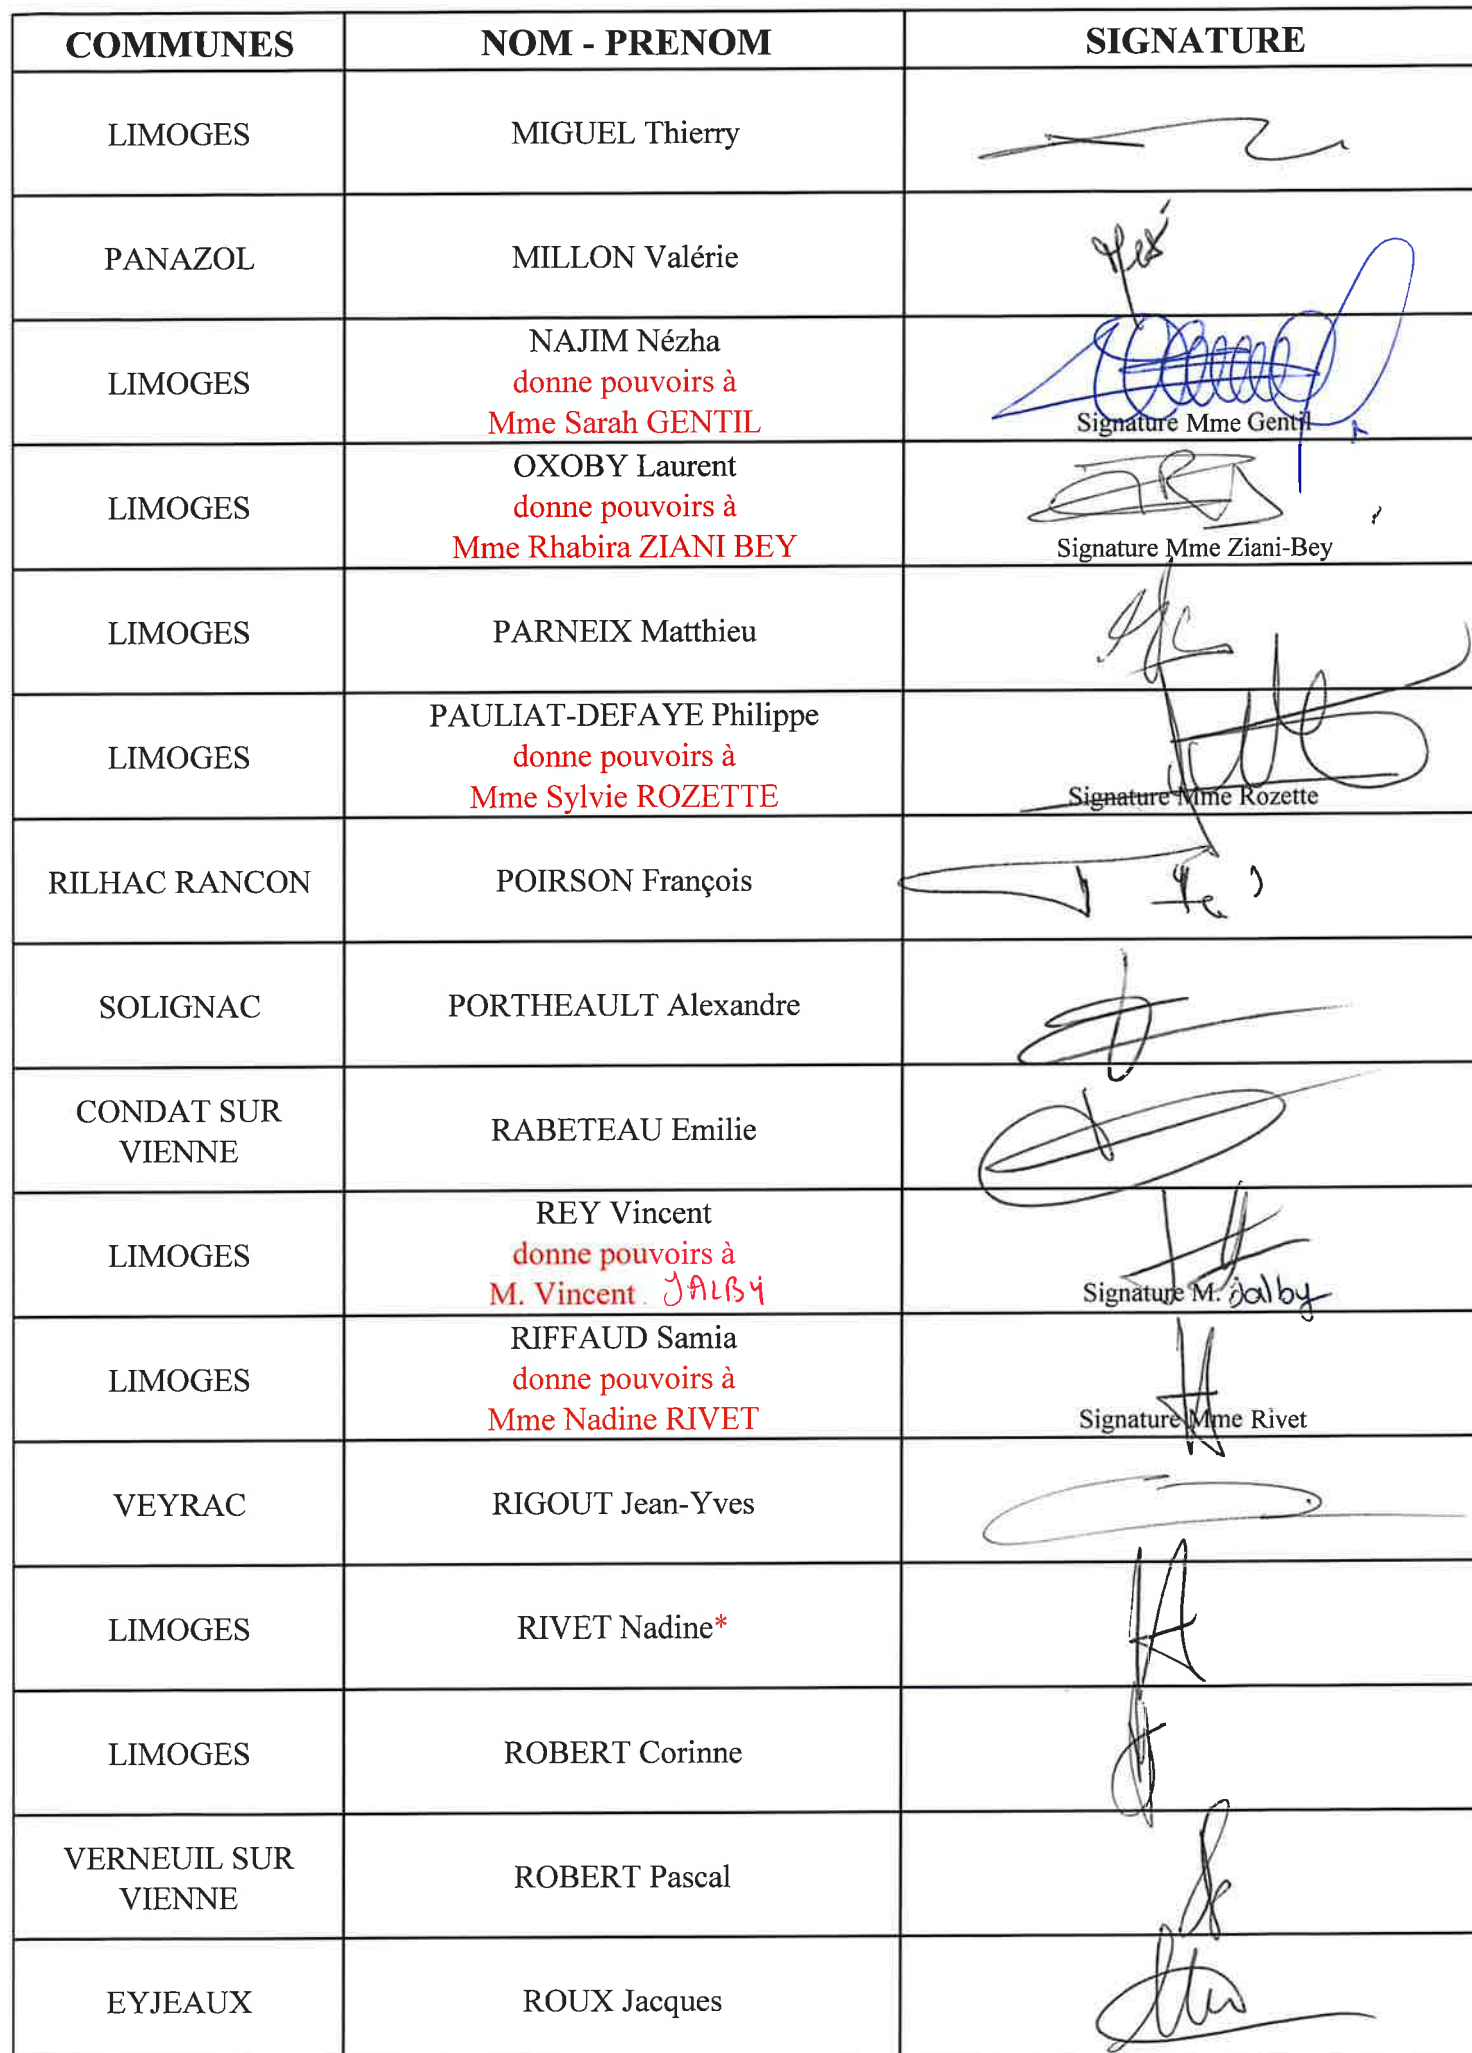 COMMUNES NOM - PRENOM SIGNATURE
LIMOGES MIGUEL Thierry
PANAZOL MILLON Valérie
NAJIM Nézha
LIMOGES donne pouvoirs à
Mme Sarah GENTIL Signature Mme Gentil
OXOBY Laurent
LIMOGES donne pouvoirs à
Mme Rhabira ZIANI BEY Signature Mme Ziani-Bey
LIMOGES PARNEIX Matthieu
PAULIAT-DEFAYE Philippe
LIMOGES donne pouvoirs à
Mme Sylvie ROZETTE Signature Mme Rozette
RILHAC RANCON POIRSON François
SOLIGNAC PORTHEAULT Alexandre
CONDAT SUR
VIENNE RABETEAU Emilie
REY Vincent
LIMOGES donne pouvoirs à
M. Vincent JALBY Signature M. Jalby
RIFFAUD Samia
LIMOGES donne pouvoirs à
Mme Nadine RIVET Signature Mme Rivet
VEYRAC RIGOUT Jean-Yves
LIMOGES RIVET Nadine*
LIMOGES ROBERT Corinne
VERNEUIL SUR
VIENNE ROBERT Pascal
EYJEAUX ROUX Jacques